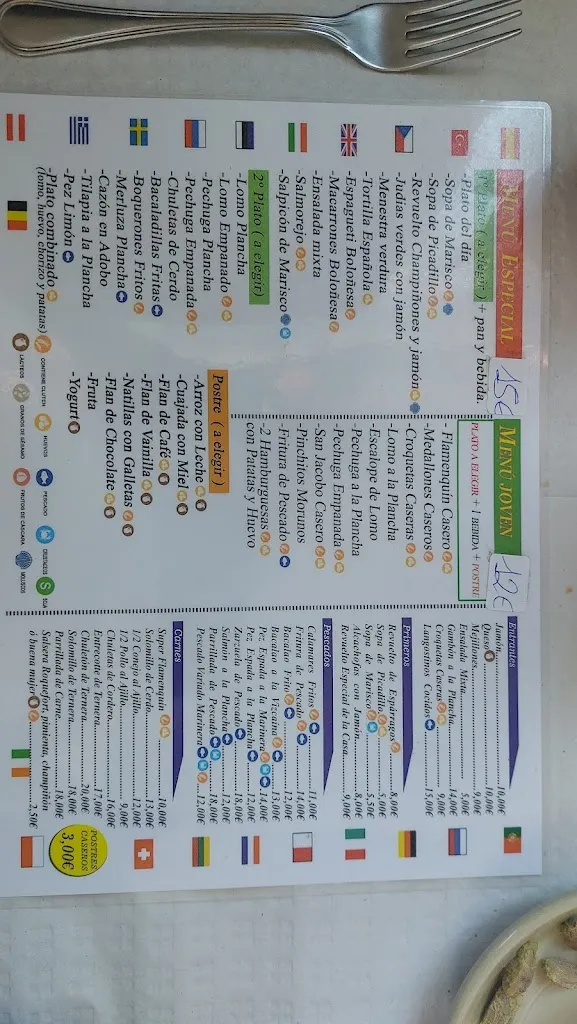 MENÚ ESPECIAL 15€
1º Plato ( a elegir ) + pan y bebida.
-Plato del día
-Sopa de Marisco
-Sopa de Picadillo
-Revuelto Champiñones y jamón
-Judias verdes con jamón
-Menestra verdura
-Tortilla Española
-Espagueti Boloñesa
-Macarrones Boloñesa
-Ensalada mixta
-Salmorejo
-Salpicón de Marisco
2º Plato ( a elegir)
-Lomo Plancha
-Lomo Empanado
-Pechuga Plancha
-Pechuga Empanada
-Chuletas de Cerdo
-Bacaladillas Fritas
-Boquerones Fritos
-Merluza Plancha
-Cazón en Adobo
-Tilapia a la Plancha
-Pez Limón
-Plato combinado
(lomo, huevo, chorizo y patatas)
MENÚ JOVEN 12€
PLATO A ELEGIR + 1 BEBIDA + POSTRE
- Flamenquín Casero
-Medallones Caseros
-Croquetas Caseras
-Lomo a la Plancha
-Escalope de Lomo
-Pechuga a la Plancha
-Pechuga Empanada
-San Jacobo Casero
-Pinchitos Morunos
-Fritura de Pescado
-2 Hamburguesas
con Patatas y Huevo
Postre ( a elegir )
-Arroz con Leche
-Cuajada con Miel
-Flan de Café
-Flan de Vainilla
-Natillas con Galletas
-Flan de Chocolate
-Fruta
-Yogurt
CONTIENE GLUTEN
HUEVOS
PESCADO
CRUSTACEOS
SOJA
LACTEOS
GRANOS DE SÉSAMO
FRUTOS DE CASCARA
MOLUSCOS
Entrantes
Jamón 10,00€
Queso 10,00€
Mejillones 9,00€
Ensalada Mixta 5,00€
Gambón a la Plancha 14,00€
Croquetas Caseras 9,00€
Langostinos Cocidos 15,00€
Primeros
Revuelto de Espárragos 8,00€
Sopa de Picadillo 5,00€
Sopa de Marisco 5,50€
Alcachofas con Jamón 8,00€
Revuelto Especial de la Casa 9,00€
Pescados
Calamares Fritos 11,00€
Fritura de Pescado 14,00€
Bacalao Frito 12,00€
Bacalao a la Vizcaína 13,00€
Pez Espada a la Marinera 14,00€
Pez Espada a la Plancha 12,00€
Zarzuela de Pescado 12,00€
Salmón a la Plancha 12,00€
Parrillada de Pescado 18,00€
Pescado Variado Marinera 12,00€
Carnes
Super Flamenquín 10,00€
Solomillo de Cerdo 13,00€
1/2 Conejo al Ajillo 12,00€
1/2 Pollo al Ajillo 9,00€
Chuletas de Cordero 16,00€
Entrecote de Ternera 17,00€
Chuletón de Ternera 20,00€
Solomillo de Ternera 18,00€
Parrillada de Carne 18,00€
Salsera Roquefort, pimienta, champiñón
ó buena mujer 2,50€
POSTRES
CASEROS
3,00€